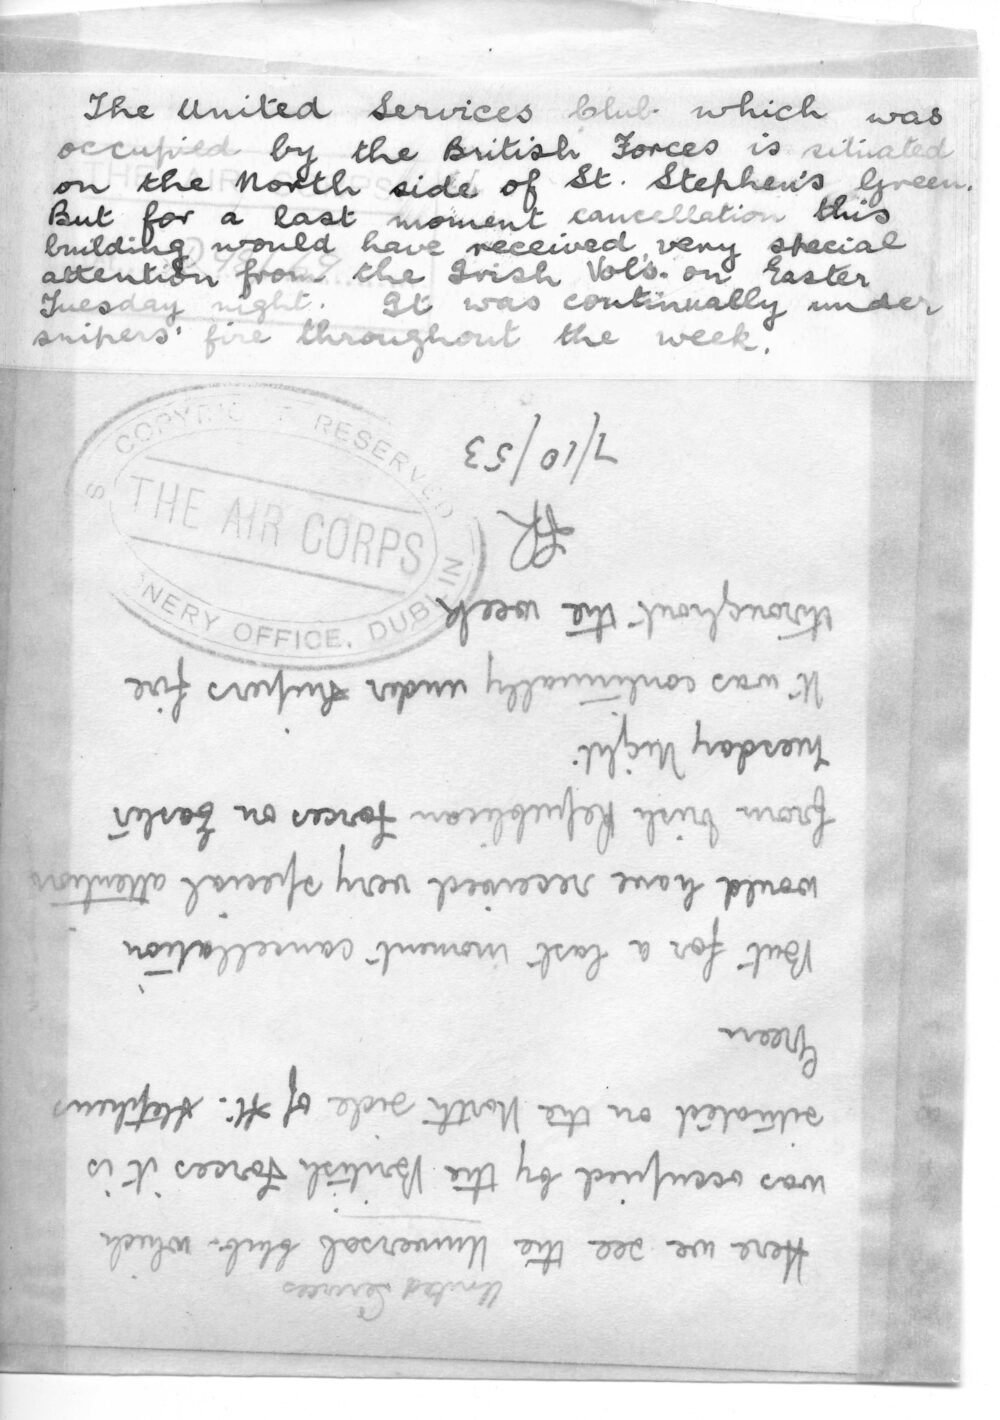 The United Services Club which was
occupied by the British Forces is situated
on the North side of St. Stephen's Green.
But for a last moment cancellation this
building would have received very special
attention from the Irish Vols. on Easter
Tuesday night. It was continually under
snipers' fire throughout the week.
COPYRIGHT RESERVED
THE AIR CORPS
OFFICE, DUBLIN
United Services
Here we see the Universal Club which
was occupied by the British Forces it is
situated on the North side of St. Stephens
Green
But for a last moment cancellation
would have received very special attention
from Irish Republican Forces on Easter
Tuesday Night.
It was continually under snipers fire
throughout the week
7/10/53